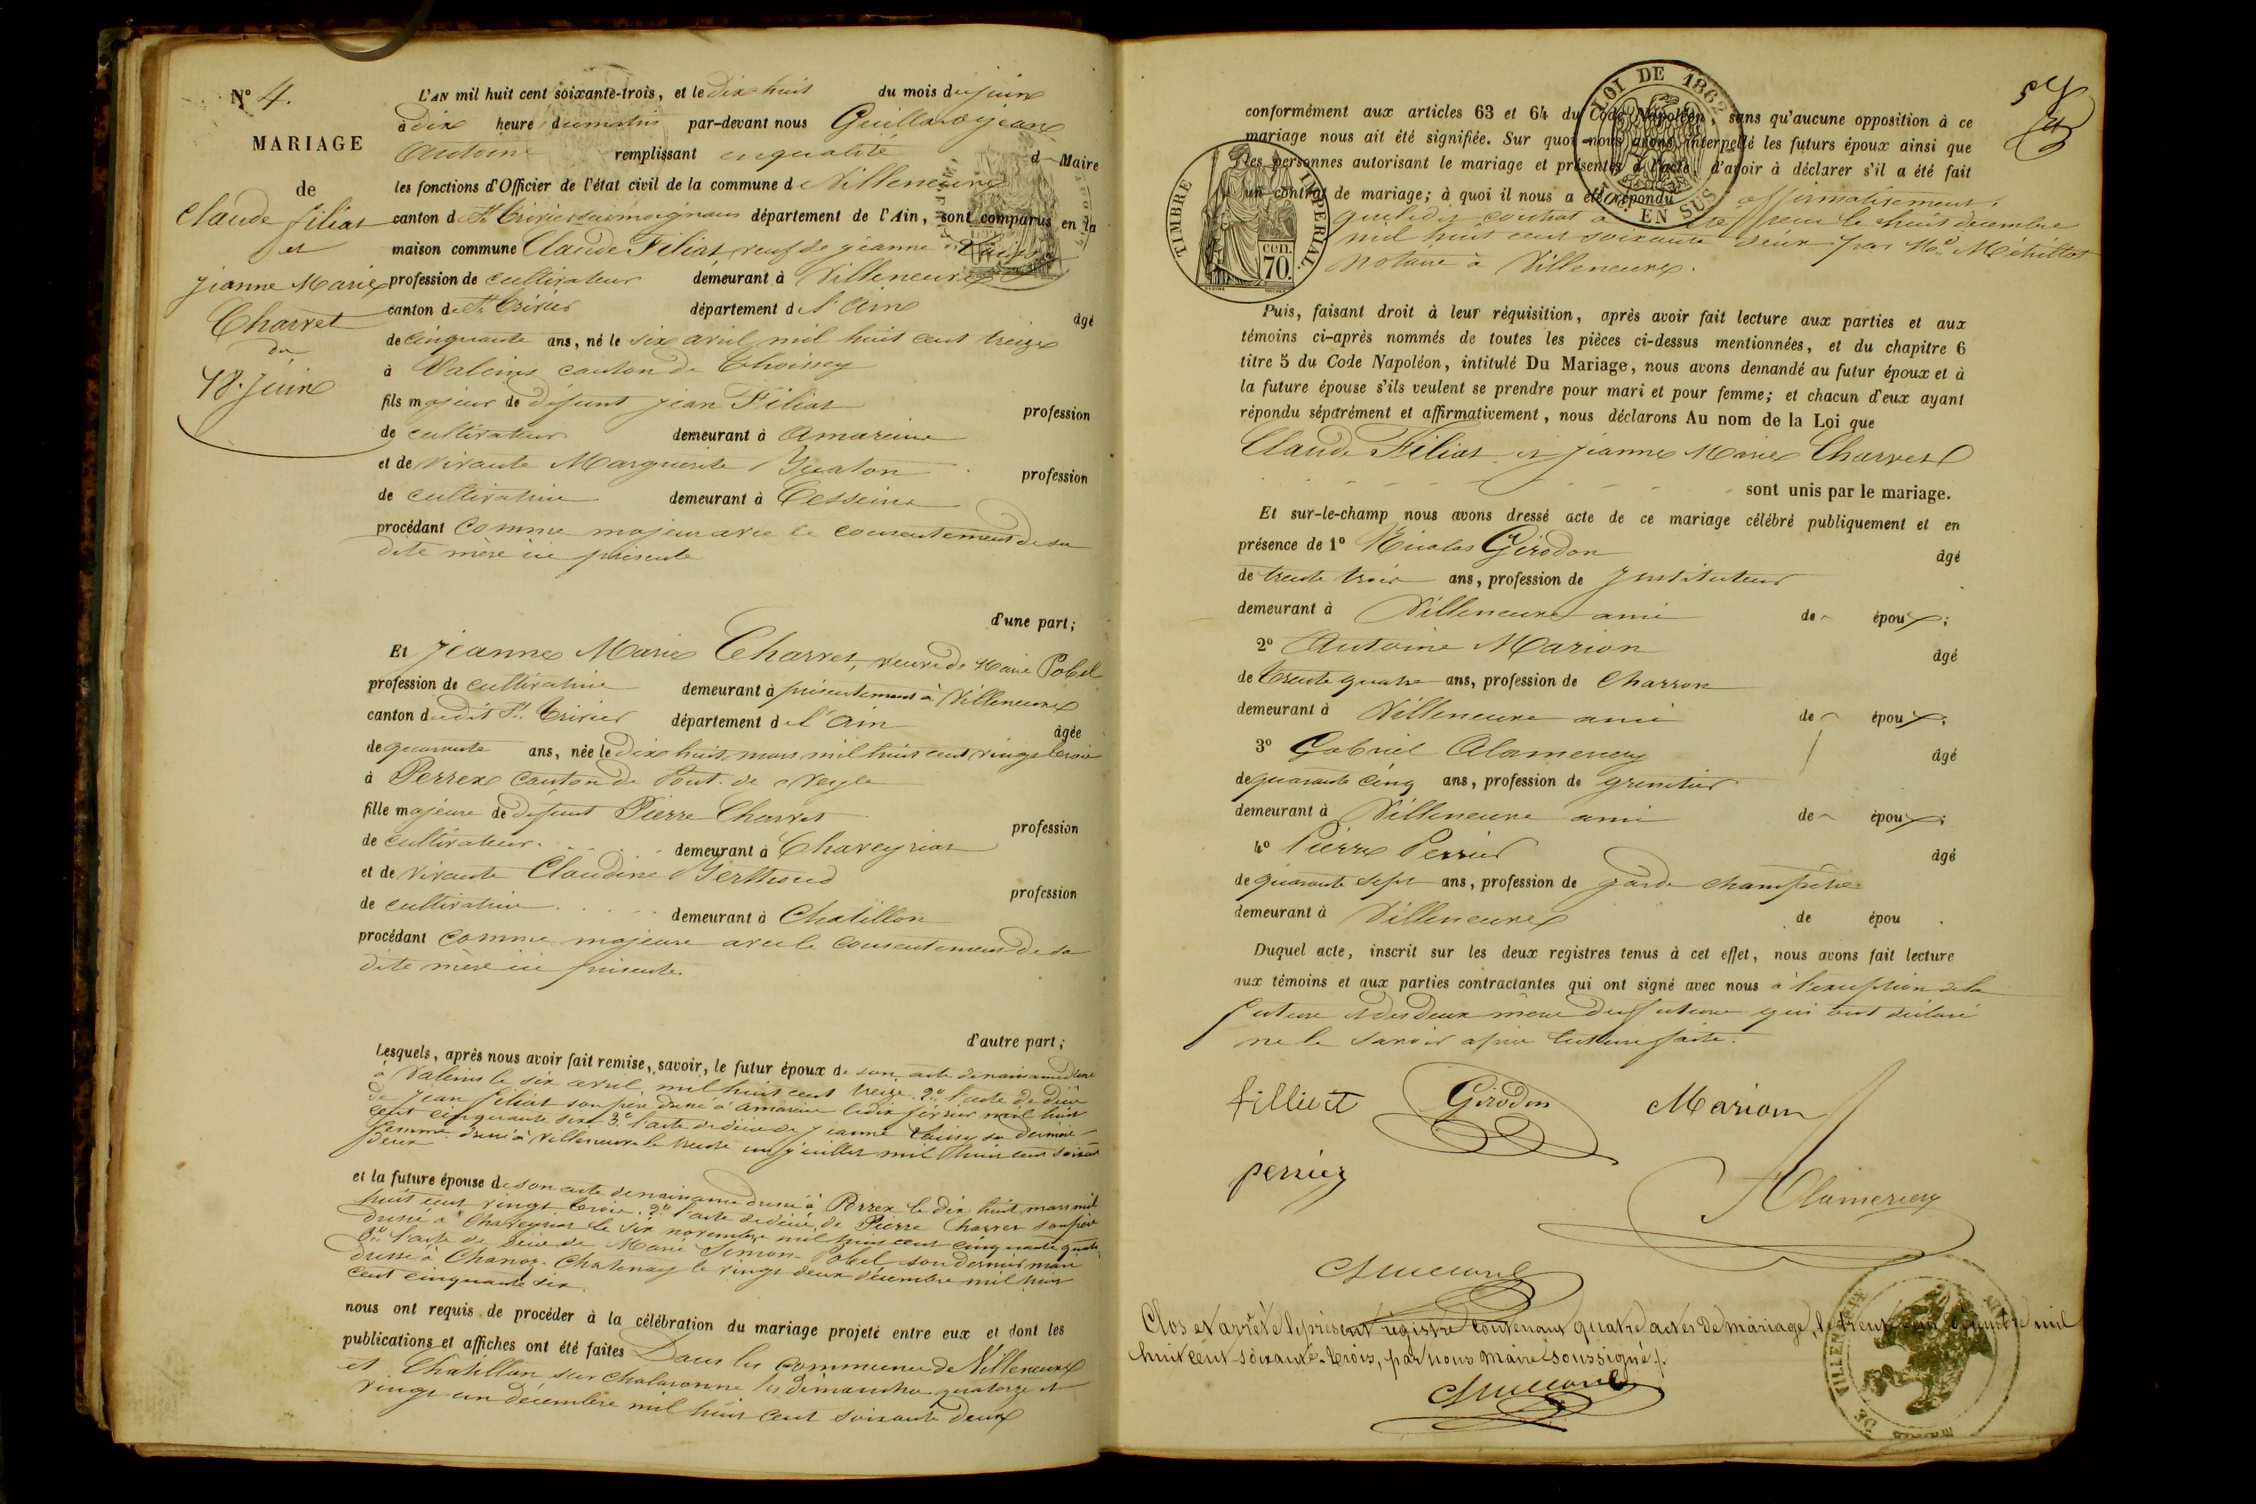 N° 4.
MARIAGE
de
Claude Filiat
et
Jeanne Marie
Charvet
du
18 Juin
L'AN mil huit cent soixante-trois, et le dix huit du mois de juin
à dix heure du matin par-devant nous Guillard jean
Antoine remplissant en qualité d Maire
les fonctions d'Officier de l'état civil de la commune d Villeneuve
canton d St Trivier sur moignans département de l'Ain, sont comparus en la
maison commune Claude Filiat, veuf de jeanne
profession de cultivateur demeurant à Villeneuve
canton de St Trivier département de l'ain âgé
de cinquante ans, né le six avril mil huit cent treize
à Valeins canton de Thoissey
fils majeur de défunt jean Filiat profession
de cultivateur demeurant à Amareins
et de vivante Marguerite profession
de cultivatrice demeurant à Cesseins
procédant comme majeur avec le consentement de sa
dite mère ici présente
d'une part;
Et jeanne Marie Charvet, veuve de Marie Pobel
profession de cultivatrice demeurant à présentement à Villeneuve
canton dudit St Trivier département de l'Ain âgée
de quarante ans, née le dix huit mars mil huit cent vingt trois
à Perrex canton de Pont de Veyle
fille majeure de défunt Pierre Charvet profession
de cultivateur demeurant à Chaveyriat
et de vivante Claudine Berthoud profession
de cultivatrice demeurant à Chatillon
procédant comme majeure avec le consentement de sa
dite mère ici présente.
d'autre part;
Lesquels, après nous avoir fait remise, savoir, le futur époux de son acte de naissance dressé
à Valeins le six avril mil huit cent treize 2° l'acte de décès
de jean filiat son père dressé à amareins le dix février mil huit
cent cinquante six 3° l'acte de décès de jeanne sa dernière
femme dressé à Villeneuve le trente un juillet mil huit cent soixante
deux
et la future épouse de son acte de naissance dressé à Perrex le dix huit mars mil
huit cent vingt trois. 2° l'acte de décès de Pierre Charvet son père
dressé à Chaveyriat le six novembre mil huit cent cinquante quatre
3° l'acte de décès de Marie Simon Pobel son dernier mari
dressé à Chanoz-Chatenay le vingt deux décembre mil huit
cent cinquante six.
nous ont requis de procéder à la célébration du mariage projeté entre eux et dont les
publications et affiches ont été faites Dans les communes de Villeneuve
et Chatillon sur chalaronne les dimanches quatorze et
vingt un décembre mil huit cent soixante deux
LOI DE 1862
EN SUS
TIMBRE IMPERIAL
70 cen.
57
conformément aux articles 63 et 64 du Code Napoléon, sans qu'aucune opposition à ce
mariage nous ait été signifiée. Sur quoi nous avons interpellé les futurs époux ainsi que
les personnes autorisant le mariage et présentes à l'acte, d'avoir à déclarer s'il a été fait
un contrat de mariage; à quoi il nous a été répondu affirmativement,
que ledit contrat a été reçu le huit décembre
mil huit cent soixante deux par Me
Notaire à Villeneuve.
Puis, faisant droit à leur réquisition, après avoir fait lecture aux parties et aux
témoins ci-après nommés de toutes les pièces ci-dessus mentionnées, et du chapitre 6
titre 5 du Code Napoléon, intitulé Du Mariage, nous avons demandé au futur époux et à
la future épouse s'ils veulent se prendre pour mari et pour femme; et chacun d'eux ayant
répondu séparément et affirmativement, nous déclarons Au nom de la Loi que
Claude Filiat et jeanne Marie Charvet
sont unis par le mariage.
Et sur-le-champ nous avons dressé acte de ce mariage célébré publiquement et en
présence de 1° Nicolas Girodon âgé
de trente trois ans, profession de Instituteur
demeurant à Villeneuve ami de époux;
2° Antoine Marion âgé
de Trente quatre ans, profession de Charron
demeurant à Villeneuve ami de époux;
3° Gabriel Alamercery âgé
de quarante cinq ans, profession de
demeurant à Villeneuve ami de époux;
4° Pierre Perrier âgé
de quarante sept ans, profession de garde champêtre
demeurant à Villeneuve de épou
Duquel acte, inscrit sur les deux registres tenus à cet effet, nous avons fait lecture
aux témoins et aux parties contractantes qui ont signé avec nous à l'exception de la
future et des deux mère des future qui ont déclaré
ne le savoir après lecture faite.
filliat Girodon Marion
perrier Alamercery
Clos et arrêté le présent registre contenant quatre actes de mariage, le trente un décembre mil
huit cent soixante-trois, par nous Maire soussigné.